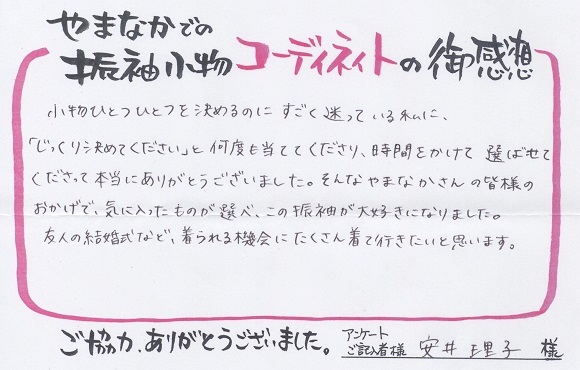 やまなかでの
振袖小物コーディネイトの御感想
小物ひとつひとつを決めるのに すごく迷っている私に、
「じっくり決めてください」と何度も当ててくださり、時間をかけて 選ばせて
くださって本当にありがとうございました。そんなやまなかさんの皆様の
おかげで、気に入ったものが選べ、この振袖が大好きになりました。
友人の結婚式など、着られる機会にたくさん着て行きたいと思います。
ご協力、ありがとうございました。
アンケート
ご記入者様 安井理子 様